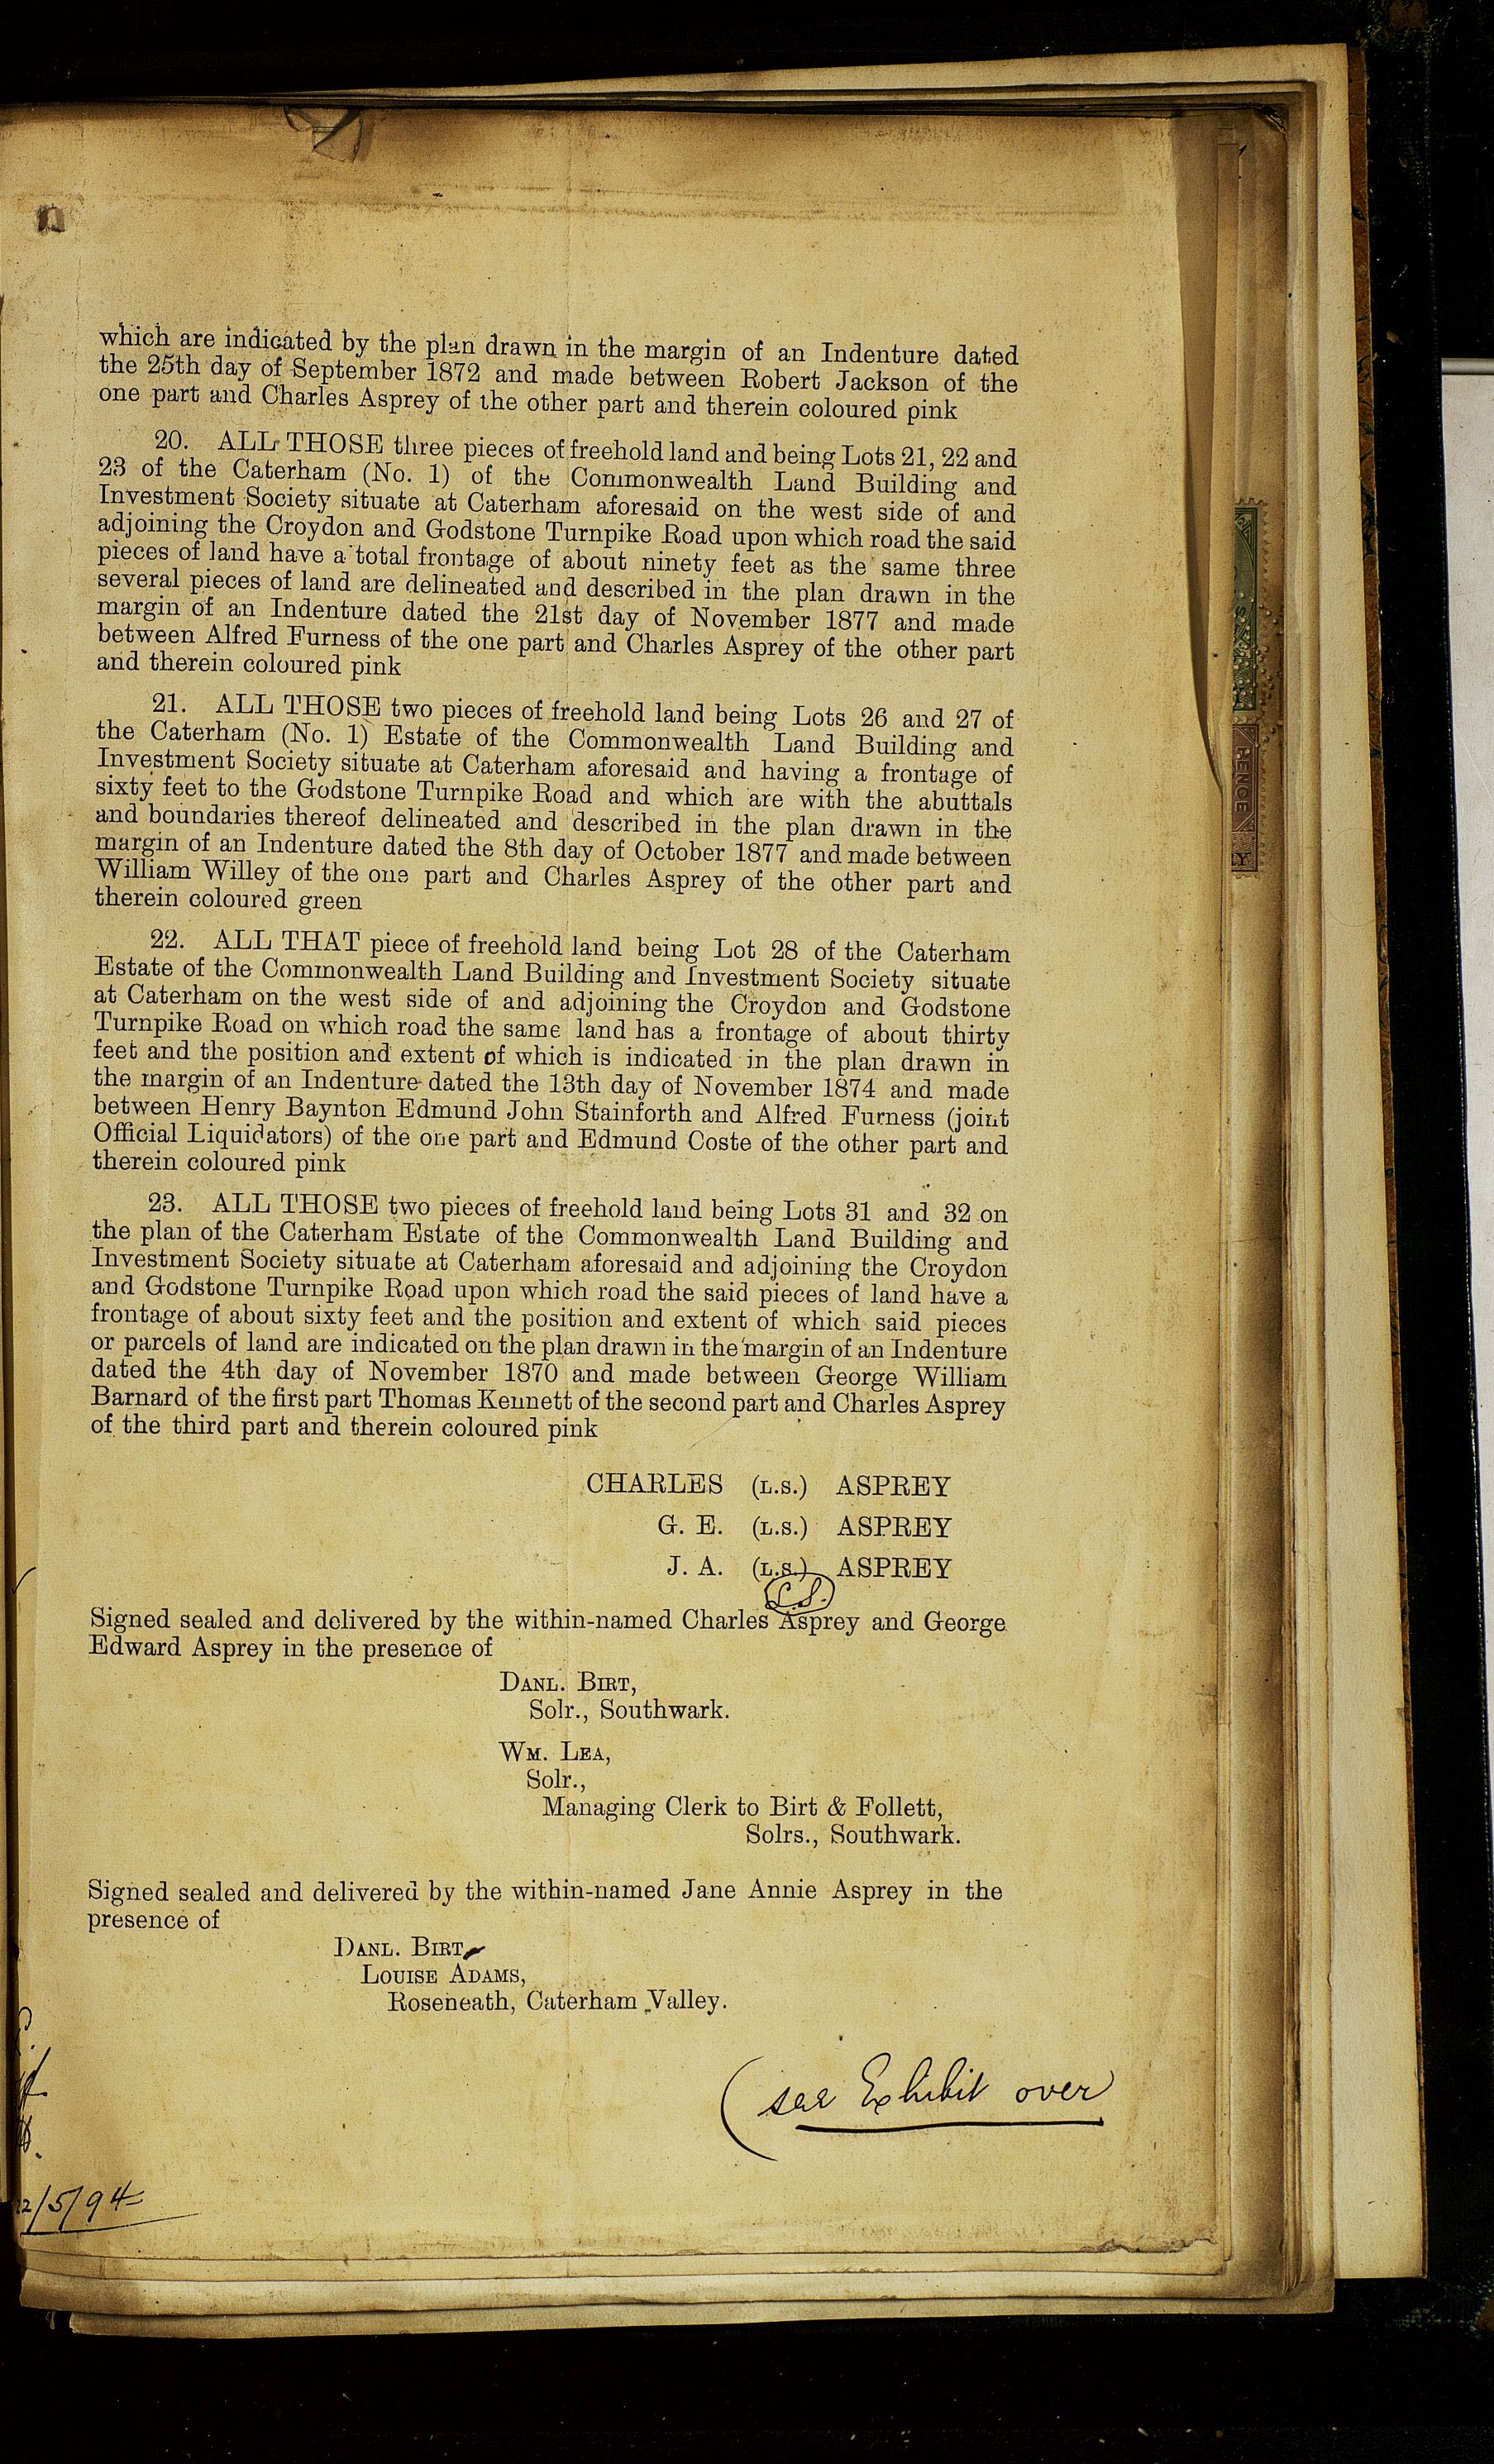 which are indicated by the plan drawn in the margin of an Indenture dated
the 25th day of September 1872 and made between Robert Jackson of the
one part and Charles Asprey of the other part and therein coloured pink
20. ALL THOSE three pieces of freehold land and being Lots 21, 22 and
23 of the Caterham (No. 1) of the Commonwealth Land Building and
Investment Society situate at Caterham aforesaid on the west side of and
adjoining the Croydon and Godstone Turnpike Road upon which road the said
pieces of land have a total frontage of about ninety feet as the same three
several pieces of land are delineated and described in the plan drawn in the
margin of an Indenture dated the 21st day of November 1877 and made
between Alfred Furness of the one part and Charles Asprey of the other part
and therein coloured pink
21. ALL THOSE two pieces of freehold land being Lots 26 and 27 of
the Caterham (No. 1) Estate of the Commonwealth Land Building and
Investment Society situate at Caterham aforesaid and having a frontage of
sixty feet to the Godstone Turnpike Road and which are with the abuttals
and boundaries thereof delineated and described in the plan drawn in the
margin of an Indenture dated the 8th day of October 1877 and made between
William Willey of the one part and Charles Asprey of the other part and
therein coloured green
22. ALL THAT piece of freehold land being Lot 28 of the Caterham
Estate of the Commonwealth Land Building and Investment Society situate
at Caterham on the west side of and adjoining the Croydon and Godstone
Turnpike Road on which road the same land has a frontage of about thirty
feet and the position and extent of which is indicated in the plan drawn in
the margin of an Indenture dated the 13th day of November 1874 and made
between Henry Baynton Edmund John Stainforth and Alfred Furness (joint
Official Liquidators) of the one part and Edmund Coste of the other part and
therein coloured pink
23. ALL THOSE two pieces of freehold land being Lots 31 and 32 on
the plan of the Caterham Estate of the Commonwealth Land Building and
Investment Society situate at Caterham aforesaid and adjoining the Croydon
and Godstone Turnpike Road upon which road the said pieces of land have a
frontage of about sixty feet and the position and extent of which said pieces
or parcels of land are indicated on the plan drawn in the margin of an Indenture
dated the 4th day of November 1870 and made between George William
Barnard of the first part Thomas Kennett of the second part and Charles Asprey
of the third part and therein coloured pink
CHARLES (L.S.) ASPREY
G. E. (L.S.) ASPREY
J. A. (L.S.) ASPREY
L.S.
Signed sealed and delivered by the within-named Charles Asprey and George
Edward Asprey in the presence of
DANL. BIRT,
Solr., Southwark.
WM. LEA,
Solr.,
Managing Clerk to Birt & Follett,
Solrs., Southwark.
Signed sealed and delivered by the within-named Jane Annie Asprey in the
presence of
DANL. BIRT
LOUISE ADAMS,
Roseneath, Caterham Valley.
(see Exhibit over)
2/5/94
PENCE